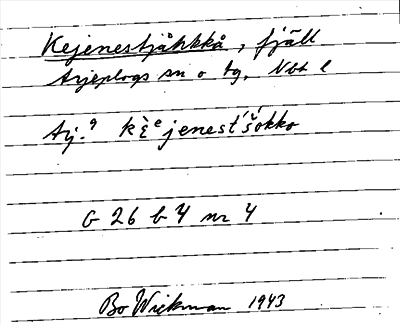 Kejenestjåhkkå, fjäll
Arjeplogs sn o tg, Nbt l
Arj.⁹ kè̮ᵉjenest́š́okko
G 26 b 4 nr 4
Bo Wickman 1943